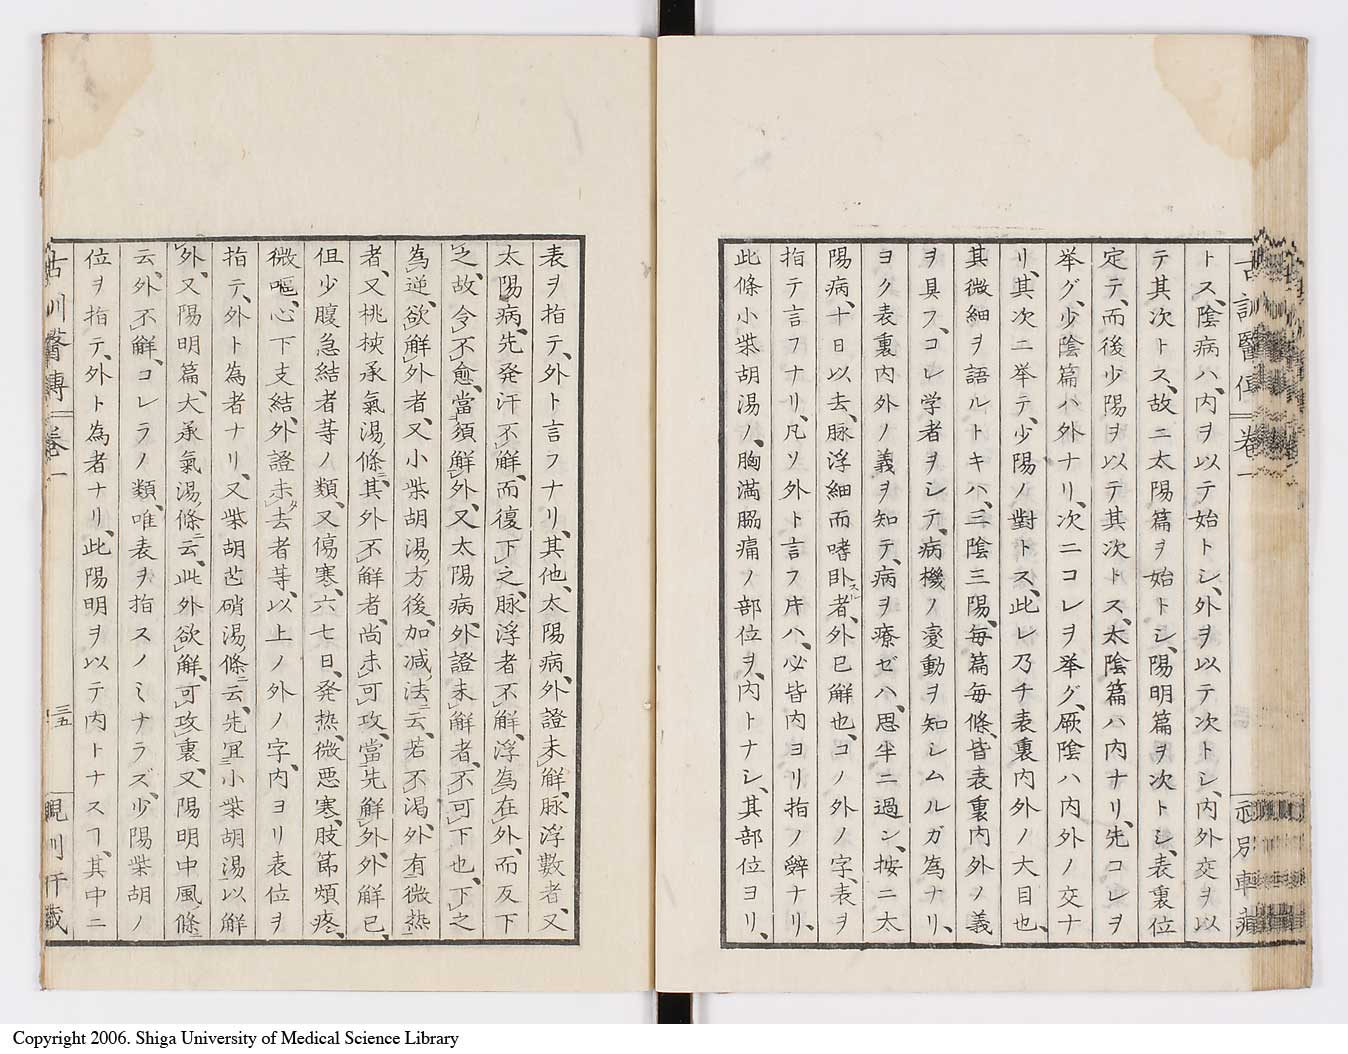 トス、陰病ハ、内ヲ以テ始トシ、外ヲ以テ次トシ、内外交ヲ以
テ其次トス、故ニ太陽篇ヲ始トシ、陽明篇ヲ次トシ、表裏位
定テ、而後少陽ヲ以テ其次トス、太陰篇ハ内ナリ、先コレヲ
挙グ、少陰篇ハ外ナリ、次ニコレヲ挙グ、厥陰ハ内外ノ交ナ
リ、其次ニ挙テ、少陽ノ對トス、此レ乃チ表裏内外ノ大目也、
其微細ヲ語ルトキハ、三陰三陽、毎篇毎條、皆表裏内外ノ義
ヲ具フ、コレ学者ヲシテ、病機ノ変動ヲ知シムルガ為ナリ、
ヨク表裏内外ノ義ヲ知テ、病ヲ療ゼハ、思半ニ過ン、按ニ太
陽病、十日以去、脉浮細而嗜臥者、外已解也、コノ外ノ字、表ヲ
指テ言フナリ、凡ソ外ト言フ𪜈ハ、必皆内ヨリ指ノ辞ナリ、
此條小柴胡湯ノ、胸満脇痛ノ部位ヲ、内トナシ、其部位ヨリ、
表ヲ指テ、外ト言フナリ、其他、太陽病、外證未解、脉浮數者、又
太陽病、先発汗不解、而復下之、脉浮者不解、浮為在外、而反下
之、故令不愈、當須解外、又太陽病、外證未解者、不可下也、下之
為逆、欲解外者、又小柴胡湯、方後、加減法ニ云、若不渇、外有微熱
者、又桃核承氣湯、條ニ、其外不解者、尚未可攻、當先解外、外解已、
但少腹急結者等ノ類、又傷寒、六七日、発热、微惡寒、肢節煩疼、
微嘔、心下支結、外證未去者等、以上ノ外ノ字、内ヨリ表位ヲ
指テ、外ト為者ナリ、又柴胡芒硝湯、條ニ云、先宜小柴胡湯以解
外、又陽明篇、大承氣湯、條ニ云、此外欲解、可攻裏、又陽明中風、條ニ
云、外不解、コレラノ類、唯表ヲ指スノミナラズ、少陽柴胡ノ
位ヲ指テ、外ト為者ナリ、此陽明ヲ以テ内トナスヿ、其中ニ
古訓醫傳 卷一
三五
Copyright 2006. Shiga University of Medical Science Library